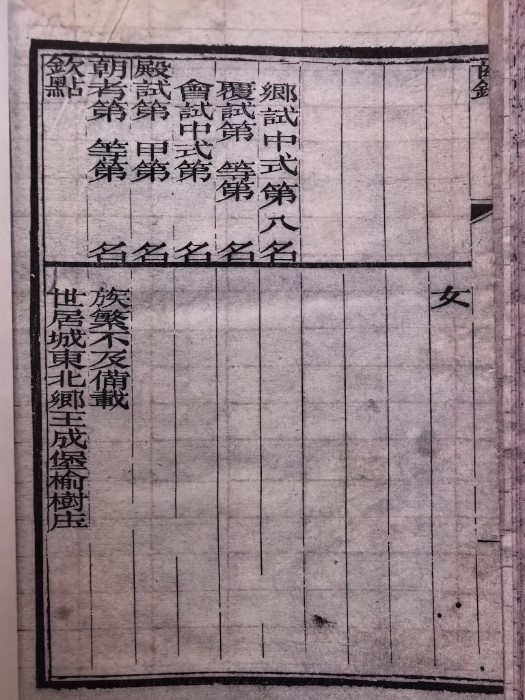 鄉試中式第八名
覆試第 等第 名
會試中式第 名
殿試第 甲第 名
朝考第 等第 名
欽點
女
族繁不及備載
世居城東北鄉王成堡榆樹庄